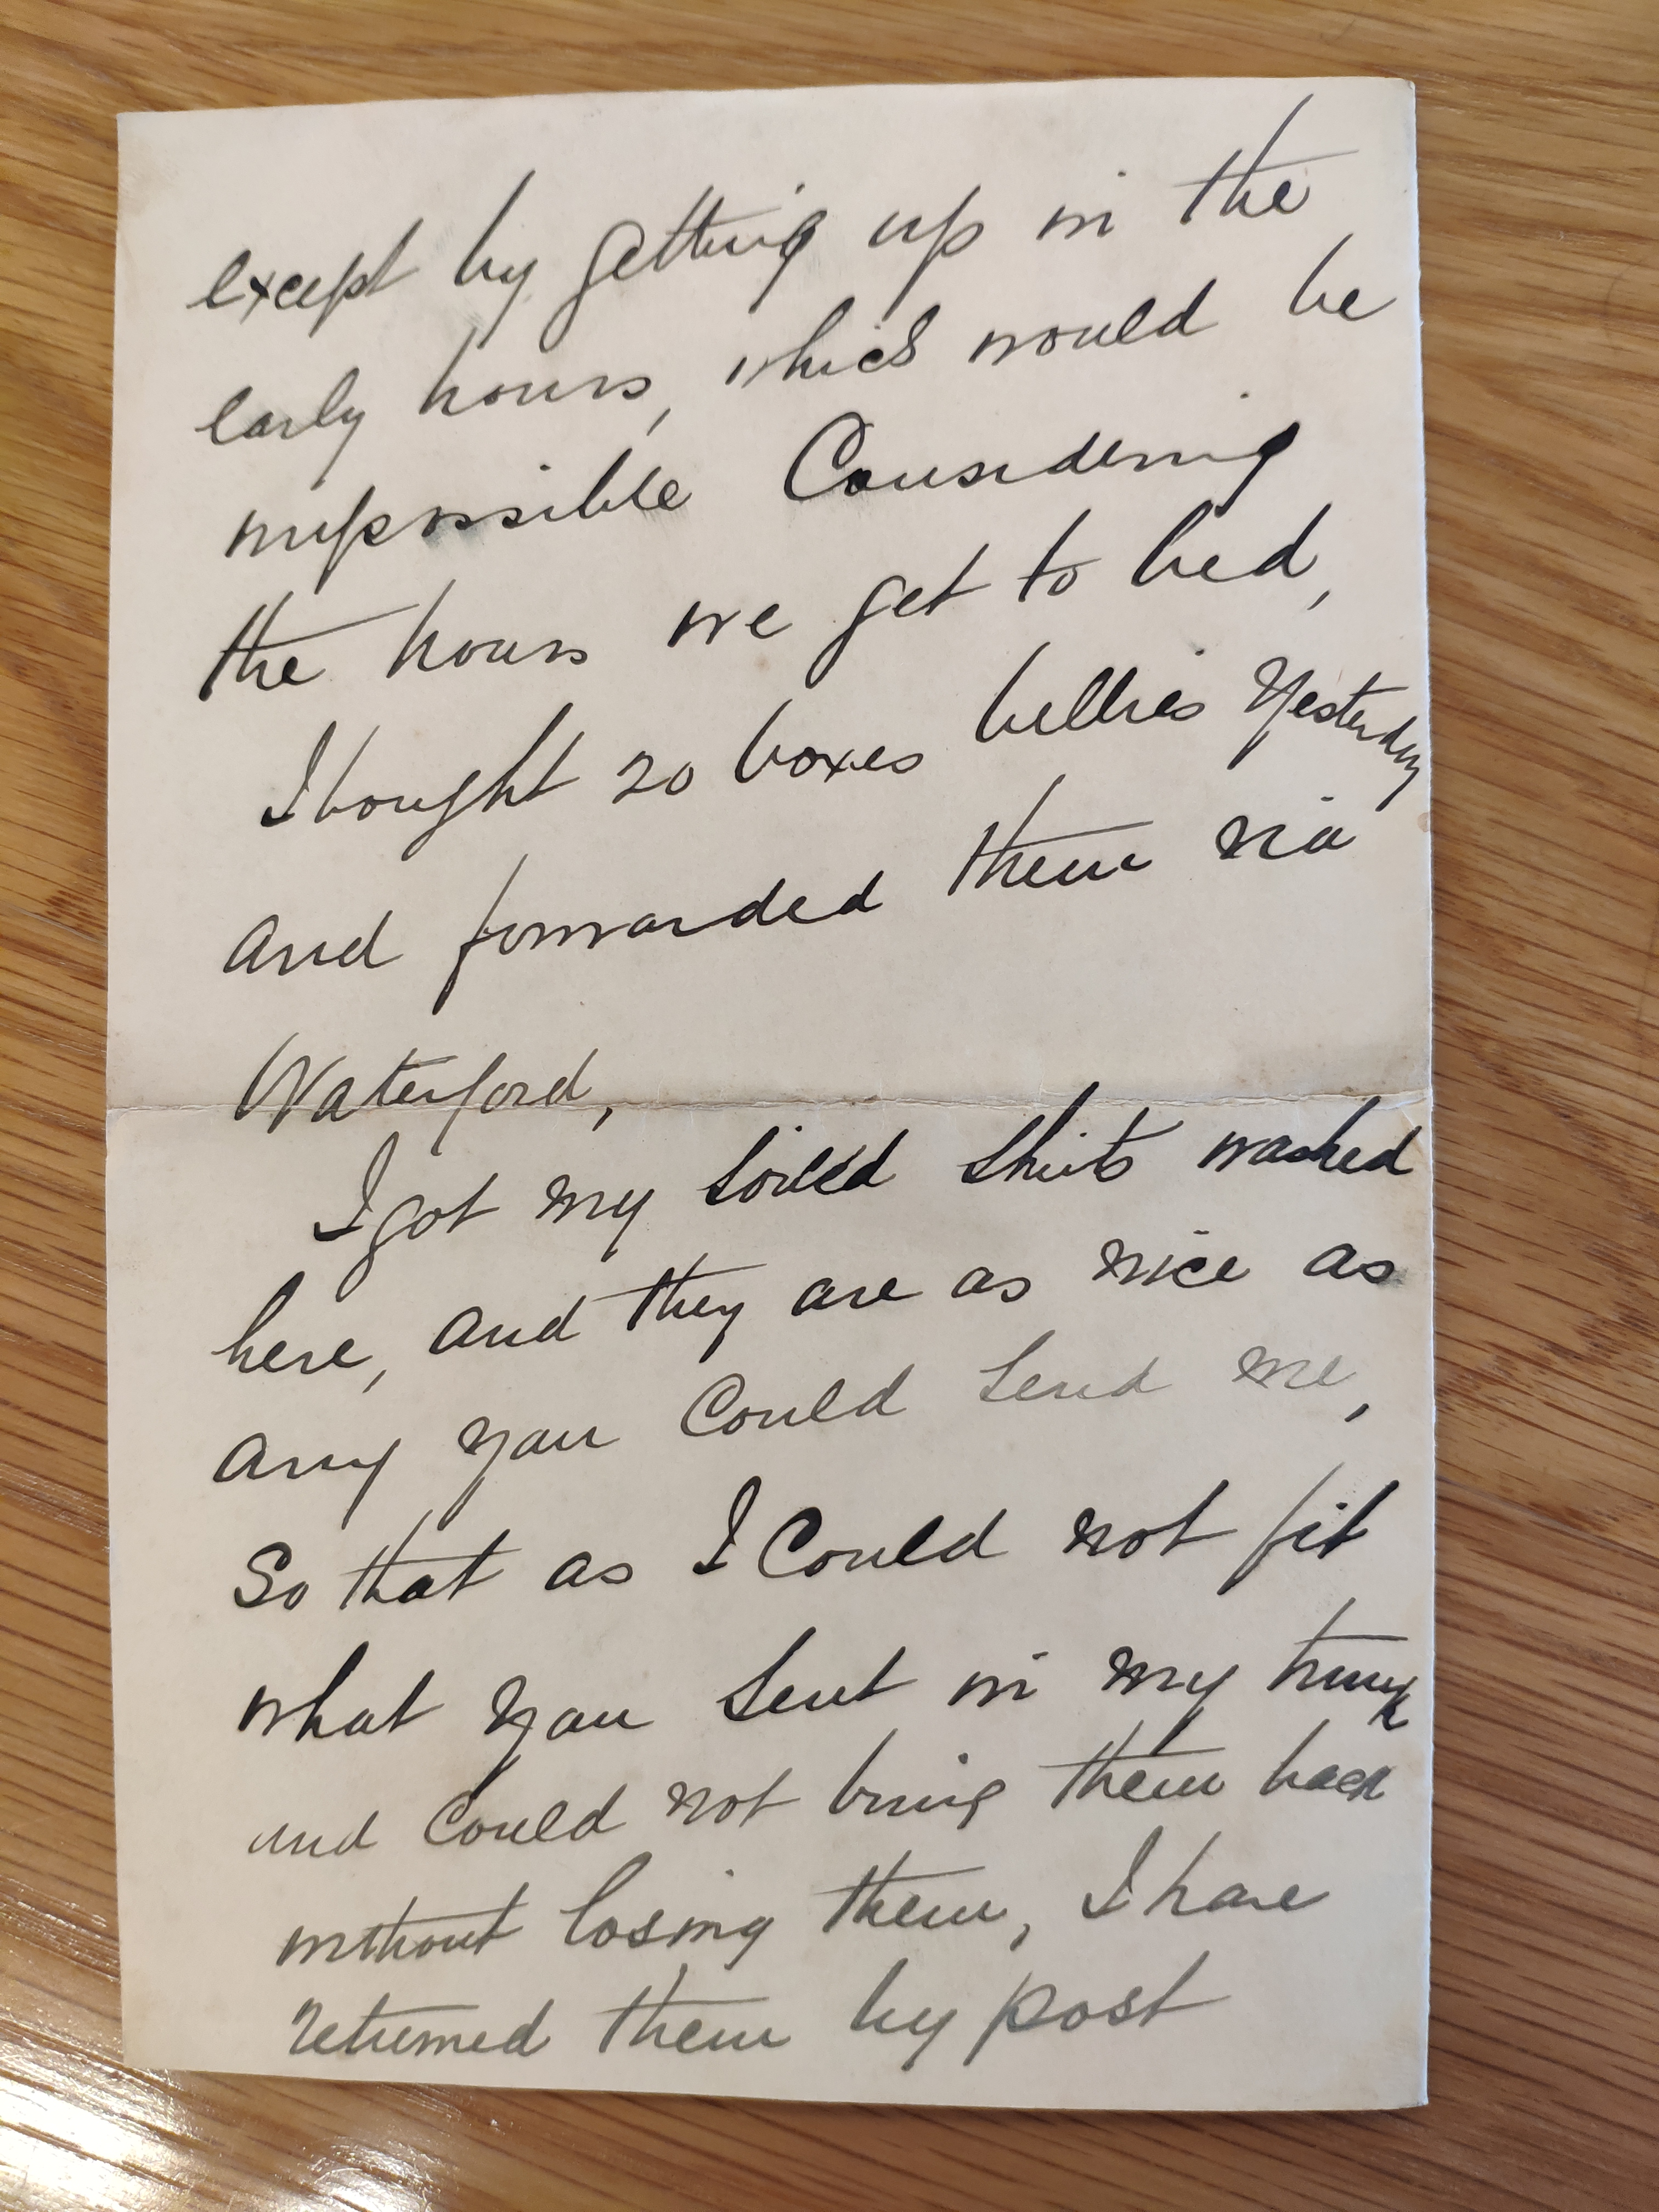 except by getting up in the
early hours, which would be
impossible Considering
the hours we get to bed,
I bought 20 boxes bellies Yesterday
and forwarded them via
Waterford,
I got my soiled shirts washed
here, and they are as nice as
any you Could send me,
So that as I Could not fit
what you sent in my trunk
and Could not bring them back
without losing them, I have
returned them by post